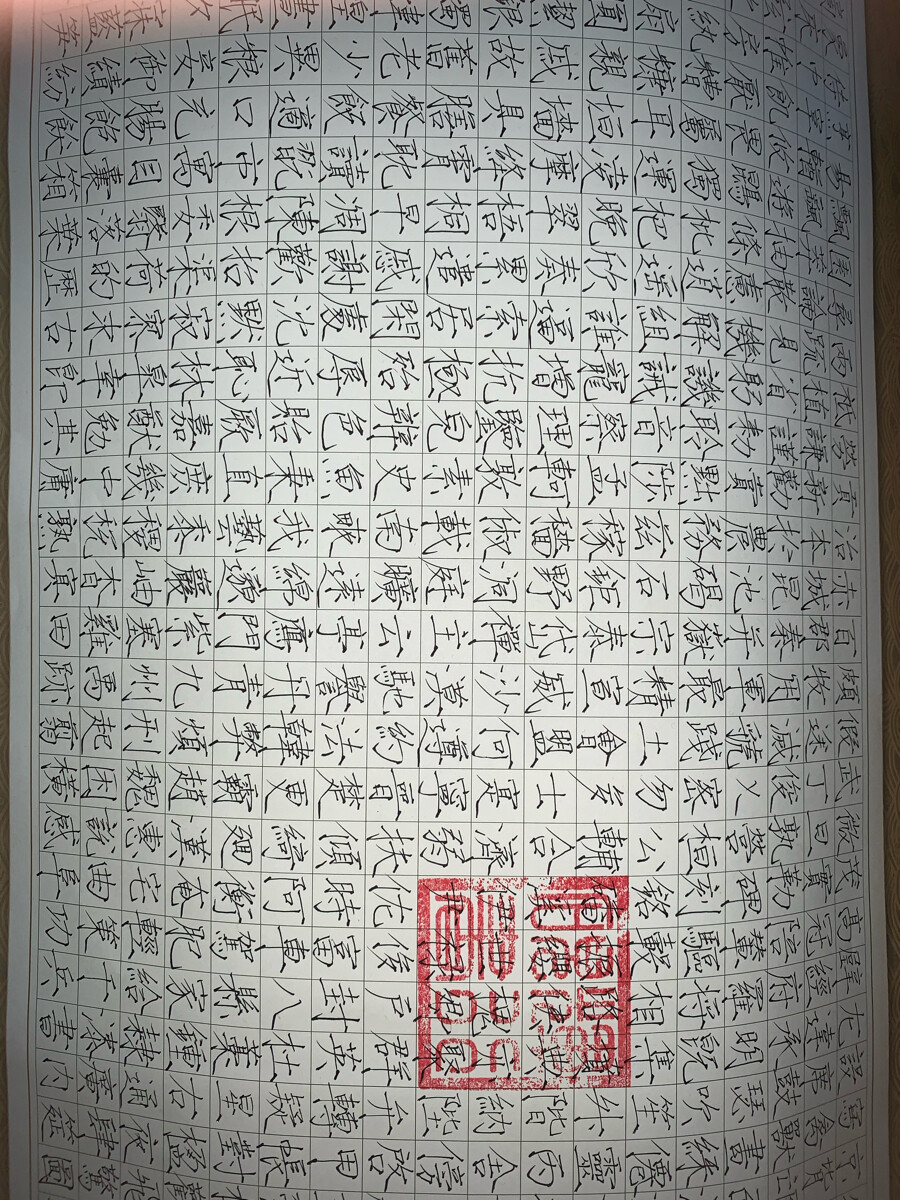 驚圖
寫禽獸畫綵仙靈丙舍傍啟甲帳對楹肆筵
設席鼓瑟吹笙升階納陛弁轉疑星右通廣內
左達承明既集墳典亦聚群英杜稿鍾隸漆書
壁經府羅將相路俠槐卿戶封八縣家給千兵
高冠陪輦驅轂振纓世祿侈富車駕肥輕策功
茂實勒碑刻銘磻溪伊尹佐時阿衡奄宅曲阜
微旦孰營桓公匡合濟弱扶傾綺廻漢惠說感
武丁俊乂密勿多士寔寧晉楚更霸趙魏困橫
假途滅虢踐土會盟何遵約法韓弊煩刑起翦
頗牧用軍最精宣威沙漠馳譽丹青九州禹跡
百郡秦并嶽宗泰岱禪主云亭鴈門紫塞雞田
赤城昆池碣石鉅野洞庭曠遠綿邈巖岫杳冥
治本於農務茲稼穡俶載南畝我藝黍稷稅熟
貢新勸賞黜陟孟軻敦素史魚秉直庶幾中庸
勞謙謹勑聆音察理鑒皃辨色貽厥嘉猷勉其
祗植省躬譏誡寵增抗極殆辱近恥林皋幸即
兩疏見機解組誰逼索居閑處沈默寂寥求古
尋論散慮逍遙欣奏累遣慼謝歡招渠荷的歷
園莽抽條枇杷晚翠梧桐早凋陳根委翳落葉
飄颻遊鵾獨運凌摩絳霄耽讀翫市寓目囊箱
易輶攸畏屬耳垣牆具膳餐飯適口充腸飽飫
烹宰飢厭糟糠親戚故舊老少異糧妾御績紡